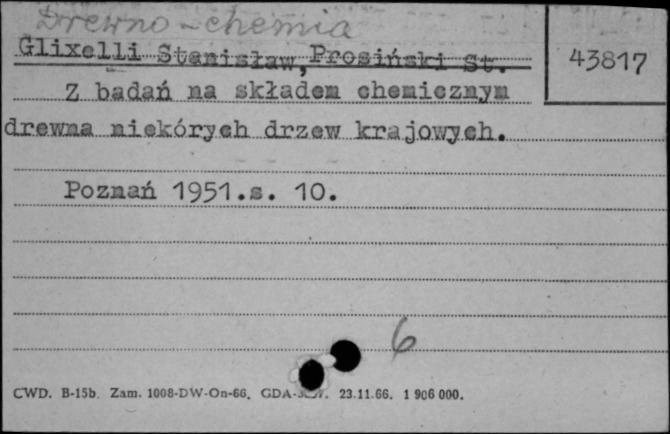 Drewno - chemia
Glixelli Stanisław, Prosiński St.
43817
Z badań na składem chemicznym
drewna niekórych drzew krajowych.
Poznań 1951.s. 10.
6
CWD. B-15b. Zam. 1008-DW-On-66. 23.11.66. 1 906 000.